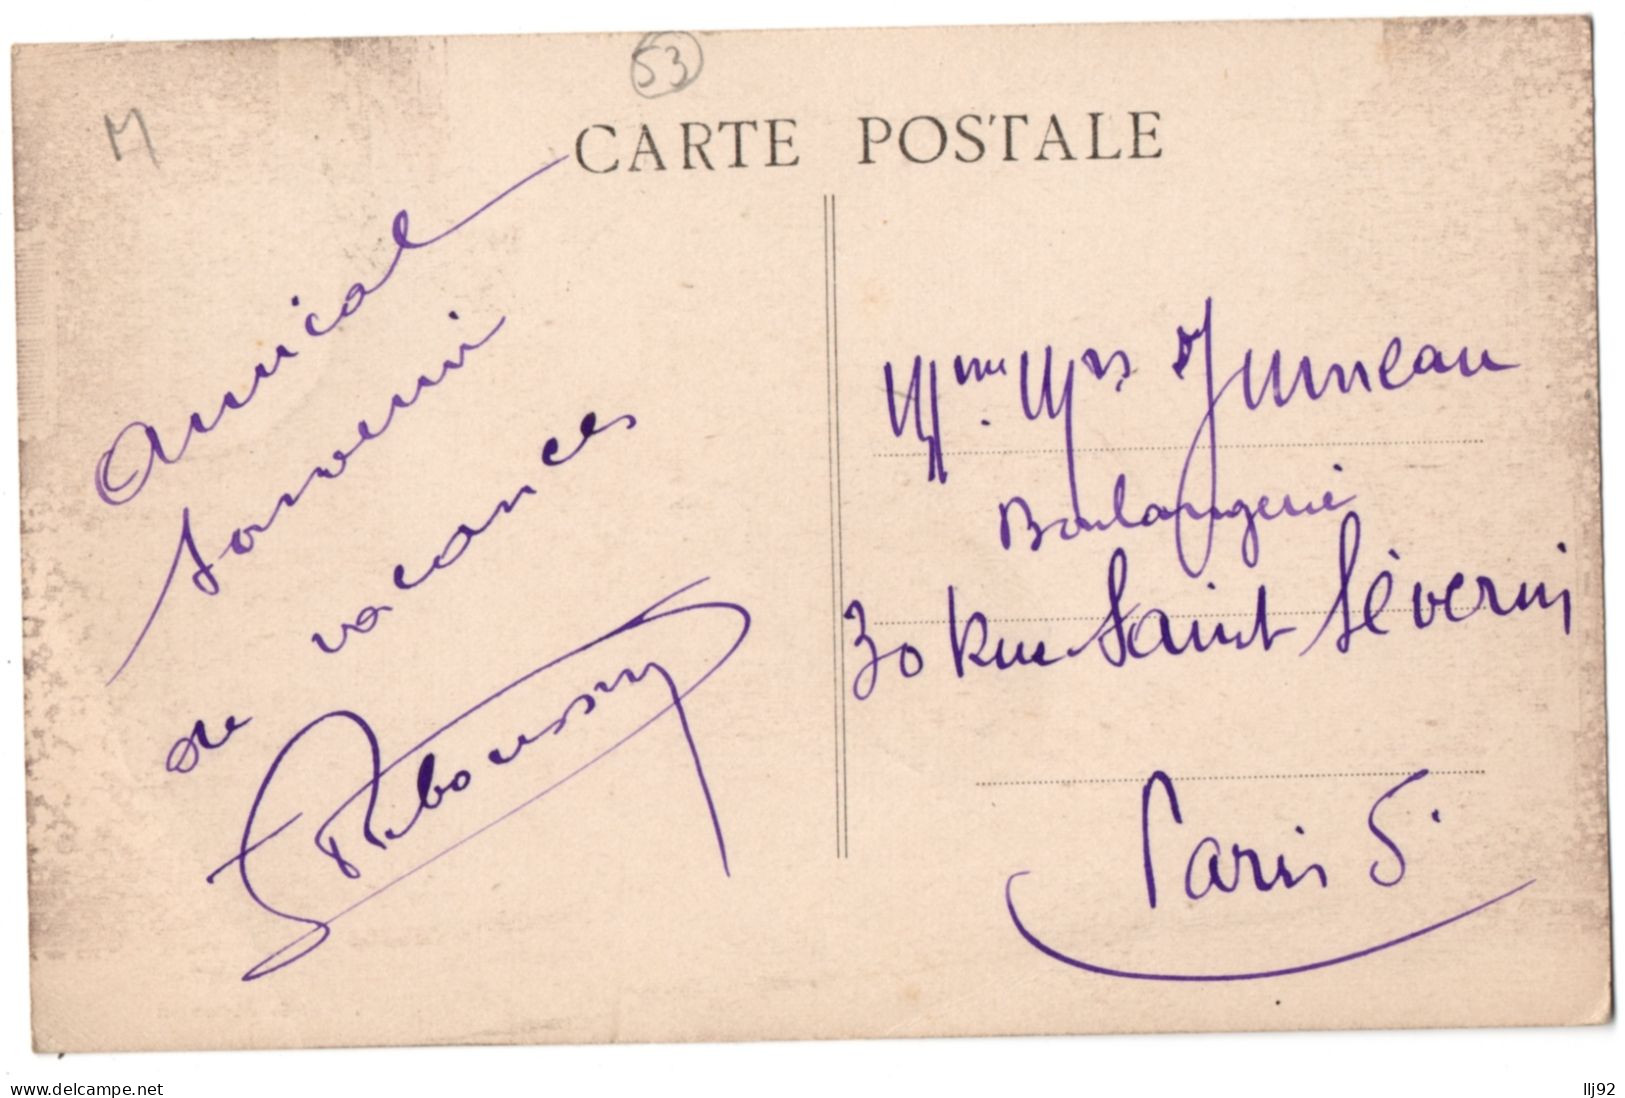 53
M
CARTE POSTALE
Amical
souvenir
de vacances
Mme. Mrs Jumeau
Boulangerie
30 Rue Saint Séverin
Paris 5.
www.delcampe.net
llj92